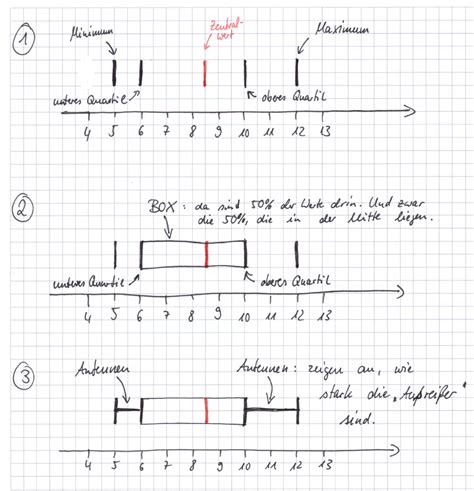 1
Minimum
Zentral-
wert
Maximum
unteres Quartil
oberes Quartil
4 5 6 7 8 9 10 11 12 13
2
BOX: da sind 50% der Werte drin. Und zwar
die 50%, die in der Mitte liegen.
unteres Quartil
oberes Quartil
4 5 6 7 8 9 10 11 12 13
3
Antennen
Antennen: zeigen an, wie
stark die "Ausreißer"
sind.
4 5 6 7 8 9 10 11 12 13